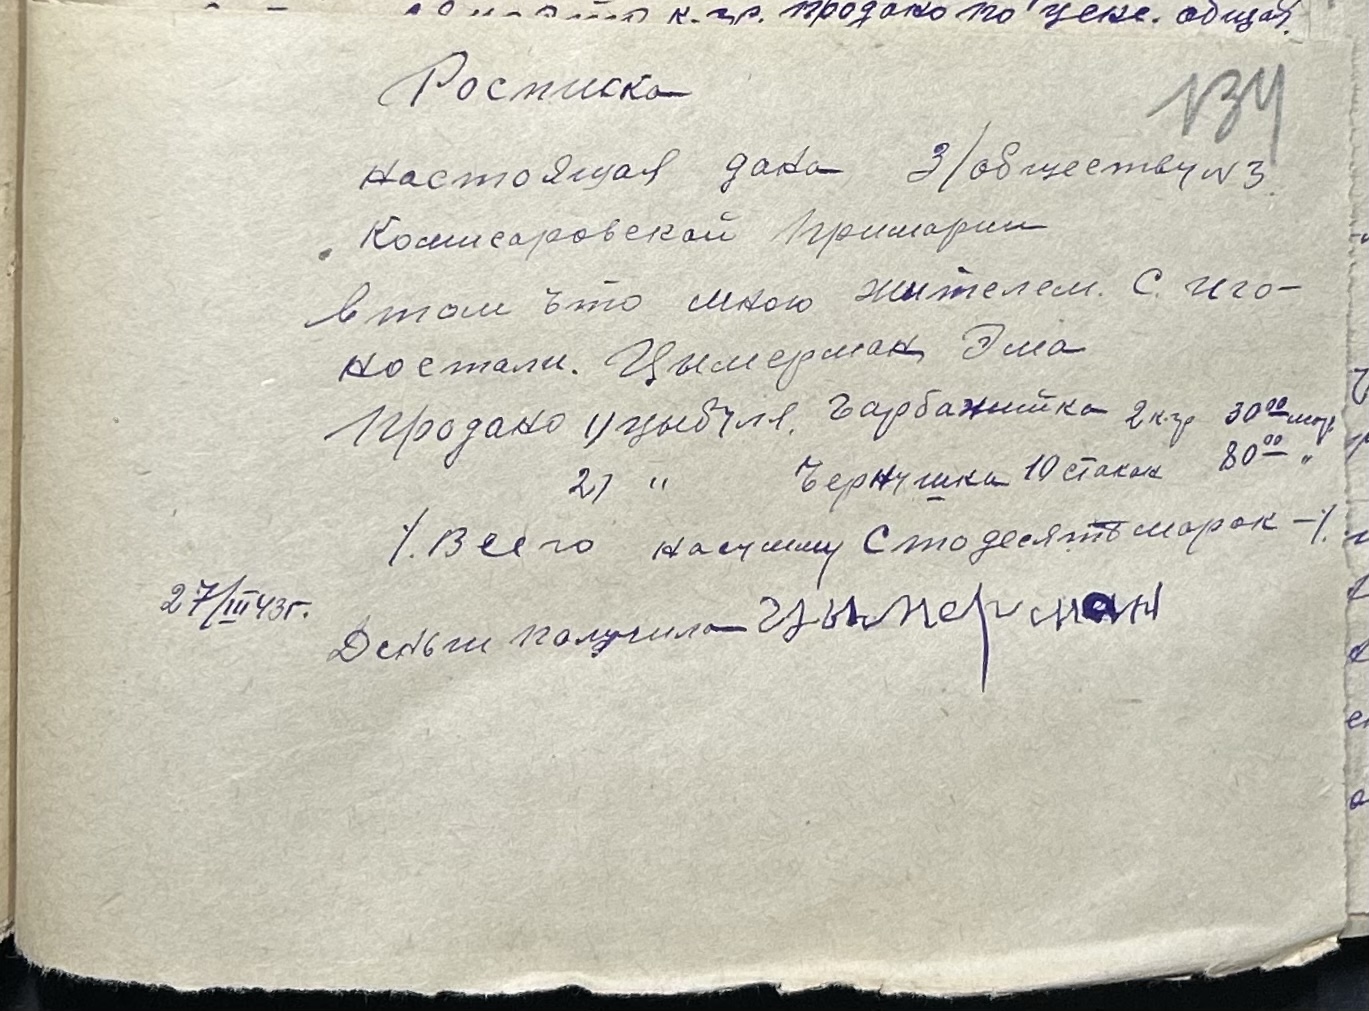 к.гр. продано по цене. общая
134
Росписка
настоящая дана З/обществу N3.
Комисаровской Примарии
в том что мною жителем. С. Иго-
ностали. Цымерман Эма
Продано 1) цыбуля. Чарбажийка 2 к.гр 30⁰⁰ мар
2) " Чернушка 10 стакан 80⁰⁰ "
/. Всего на сумму Сто десять марок -/.
27/III 43г.
Деньги получила Цымерман